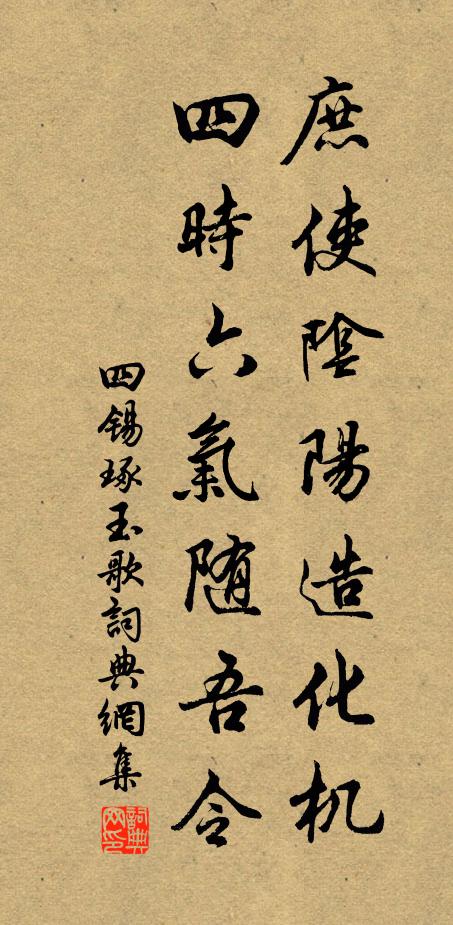 庶使陰陽造化机
四時六氣随吾令
四锡琢玉歌詞典網集
詞典網印